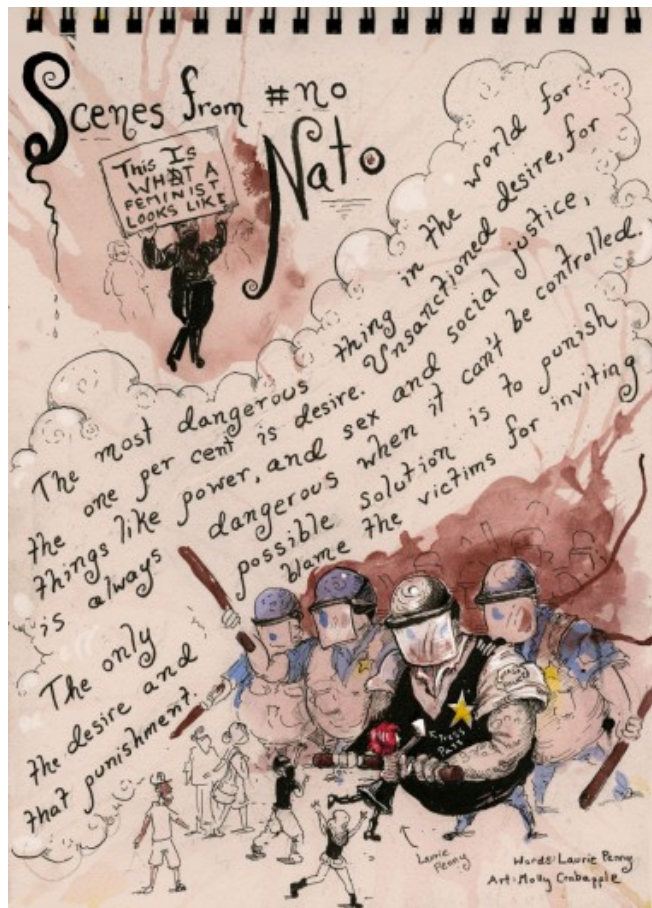 Scenes from #no
Nato
This IS
WHAT A
FEMINIST
LOOKS LIKE
The most dangerous thing in the world for
the one per cent is desire. Unsanctioned desire, for
things like power, and sex and social justice,
is always dangerous when it can't be controlled.
The only possible solution is to punish
the desire and blame the victims for inviting
that punishment.
Press
Pass
Laurie
Penny
Words: Laurie Penny
Art: Molly Crabapple